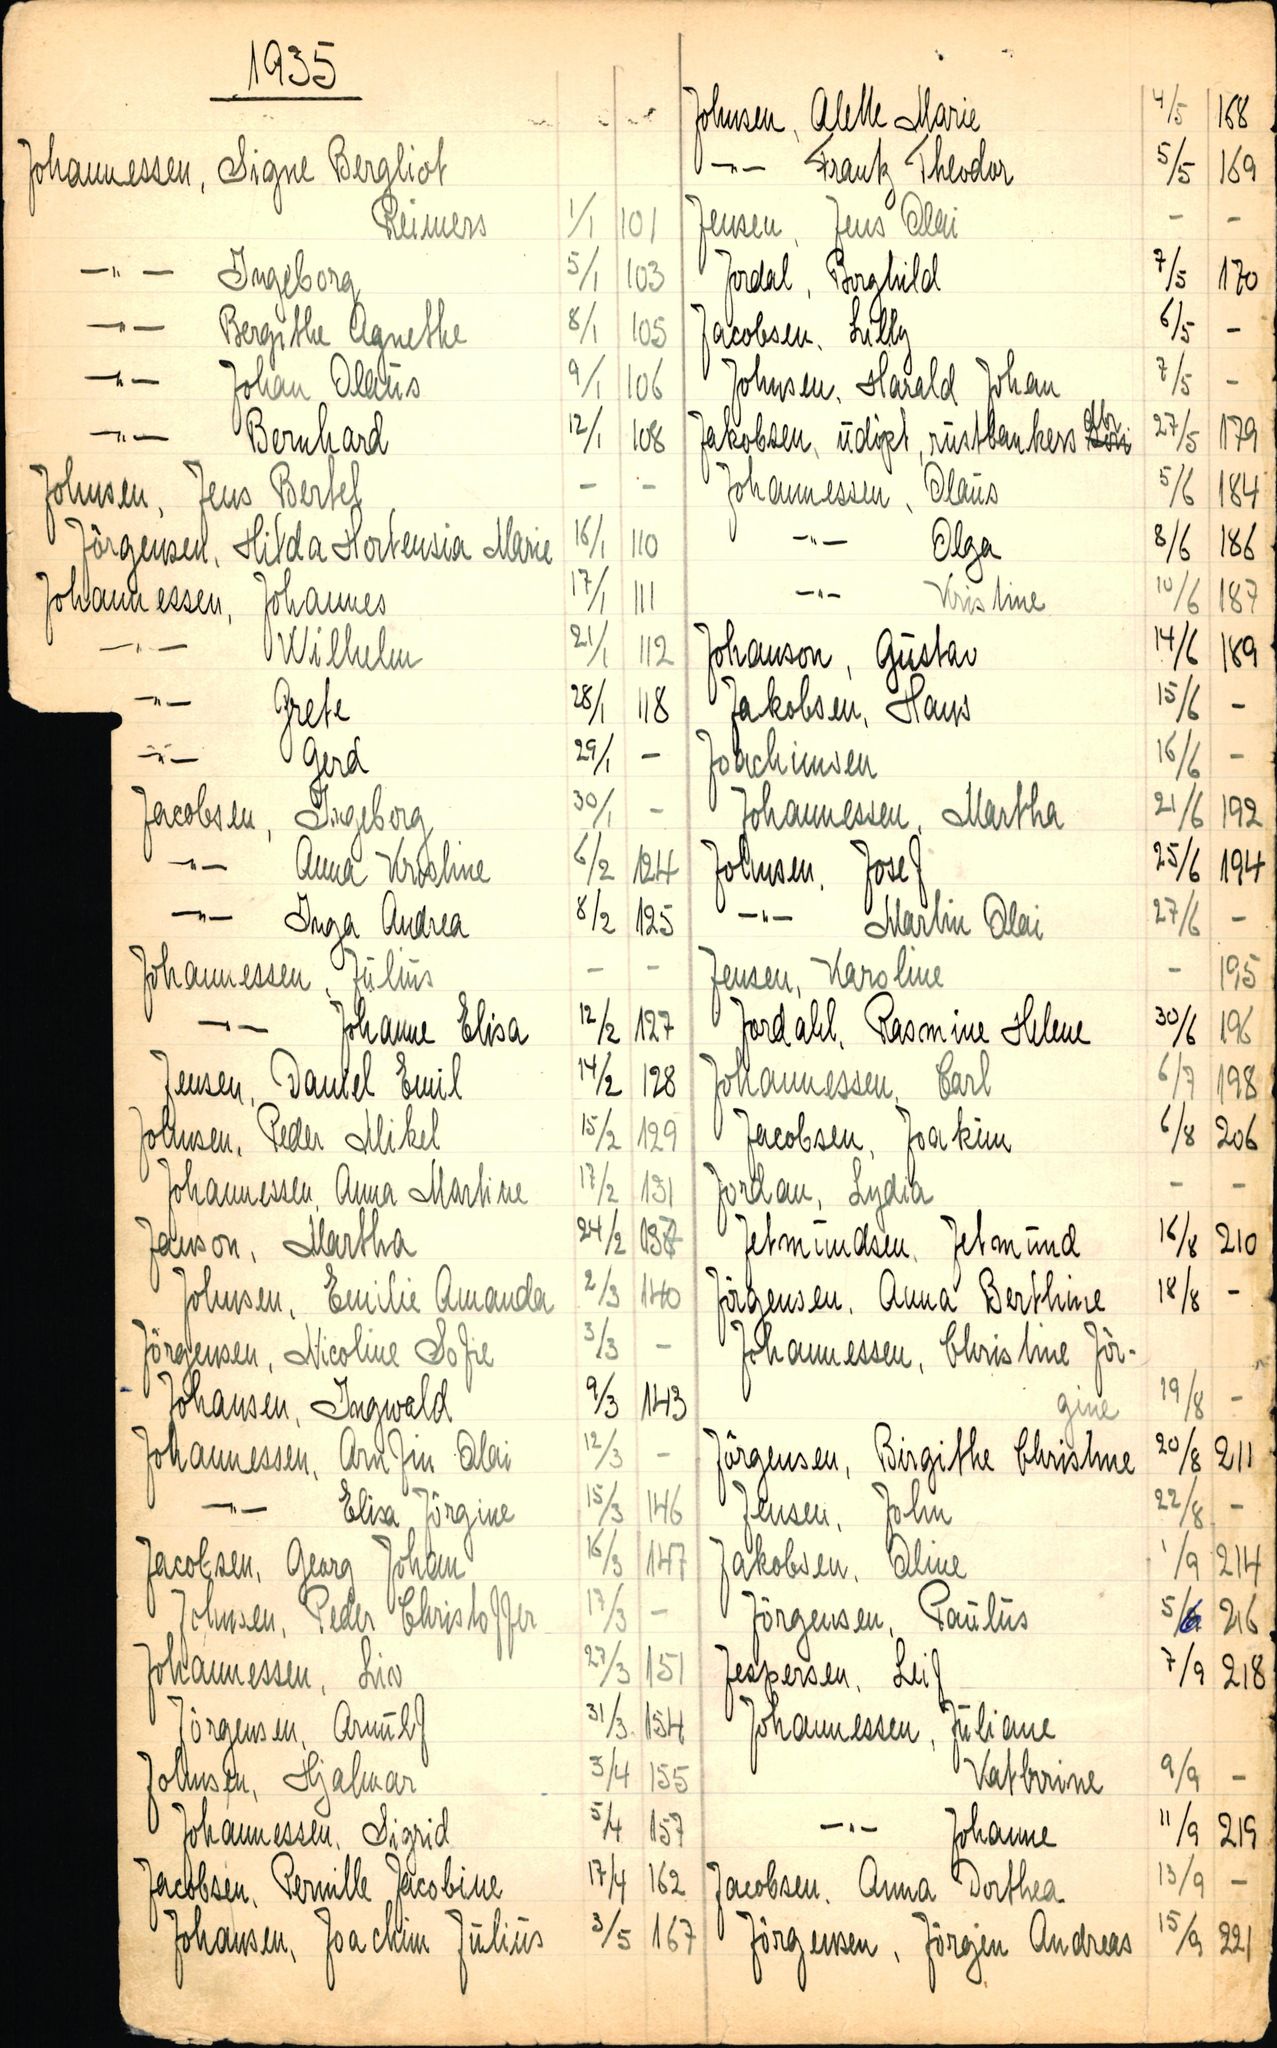 1935
Johannessen, Signe Bergliot
Reimers 1/1 101
-"- Ingeborg 5/1 103
-"- Bergithe Agnethe 8/1 105
-"- Johan Olaüs 9/1 106
-"- Bernhard 12/1 108
Johnsen, Jens Bertel - -
Jörgensen, Hilda Hortensia Marie 16/1 110
Johannessen, Johannes 17/1 111
-"- Wilhelm 21/1 112
-"- Grete 28/1 118
-"- Gerd 29/1 -
Jacobsen, Ingeborg 30/1 -
-"- Anna Kristine 6/2 124
-"- Inga Andrea 8/2 125
Johannessen, Jülius - -
-"- Johanne Elisa 12/2 127
Jensen, Daniel Emil 14/2 128
Johnsen, Peder Mikel 15/2 129
Johannessen, Anna Martine 17/2 131
Janson, Martha 24/2 137
Johnsen, Emilie Amanda 2/3 140
Jörgensen, Nicoline Sofie 3/3 -
Johansen, Ingwald 9/3 143
Johannessen, Arnfin Olai 12/3 -
-"- Elisa Jörgine 15/3 146
Jacobsen, Georg Johan 16/3 147
Johnsen, Peder Christoffer 17/3 -
Johannessen, Liv 27/3 151
Jörgensen, Arnülf 31/3 154
Johnsen, Hjalmar 3/4 155
Johannessen, Sigrid 5/4 157
Jacobsen, Pernille Jacobine 17/4 162
Johansen, Joachim Jülius 3/5 167
Johnsen, Alette Marie 4/5 168
-"- Frantz Theodor 5/5 169
Jensen, Jens Olai - -
Jordal, Borghild 7/5 170
Jacobsen, Lilly 6/5 -
Johnsen, Harald Johan 7/5 -
Jakobsen, üdöpt, rüstbankers 27/5 179
Johannessen, Olaüs 5/6 184
-"- Olga 8/6 186
-"- Kristine 10/6 187
Johanson, Güstav 14/6 189
Jakobsen, Hans 15/6 -
Joachimsen 16/6 -
Johannessen, Martha 21/6 192
Johnsen, Josef 25/6 194
-"- Martin Olai 27/6 -
Jensen, Karoline - 195
Jordahl, Rasmine Helene 30/6 196
Johannessen, Carl 6/7 198
Jacobsen, Joakim 6/8 206
Jordan, Lydia - -
Jetmündsen, Jetmünd 16/8 210
Jörgensen, Anna Berthine 18/8 -
Johannessen, Christine Jör-
gine 19/8 -
Jörgensen, Birgithe Christine 20/8 211
Jensen, John 22/8 -
Jakobsen, Oline 1/9 214
Jörgensen, Paülüs 5/9 216
Jespersen, Leif 7/9 218
Johannessen, Jüliane
Kathrine 9/9 -
-"- Johanne 11/9 219
Jacobsen, Anna Dorthea 13/9 -
Jörgensen, Jörgen Andreas 15/9 221